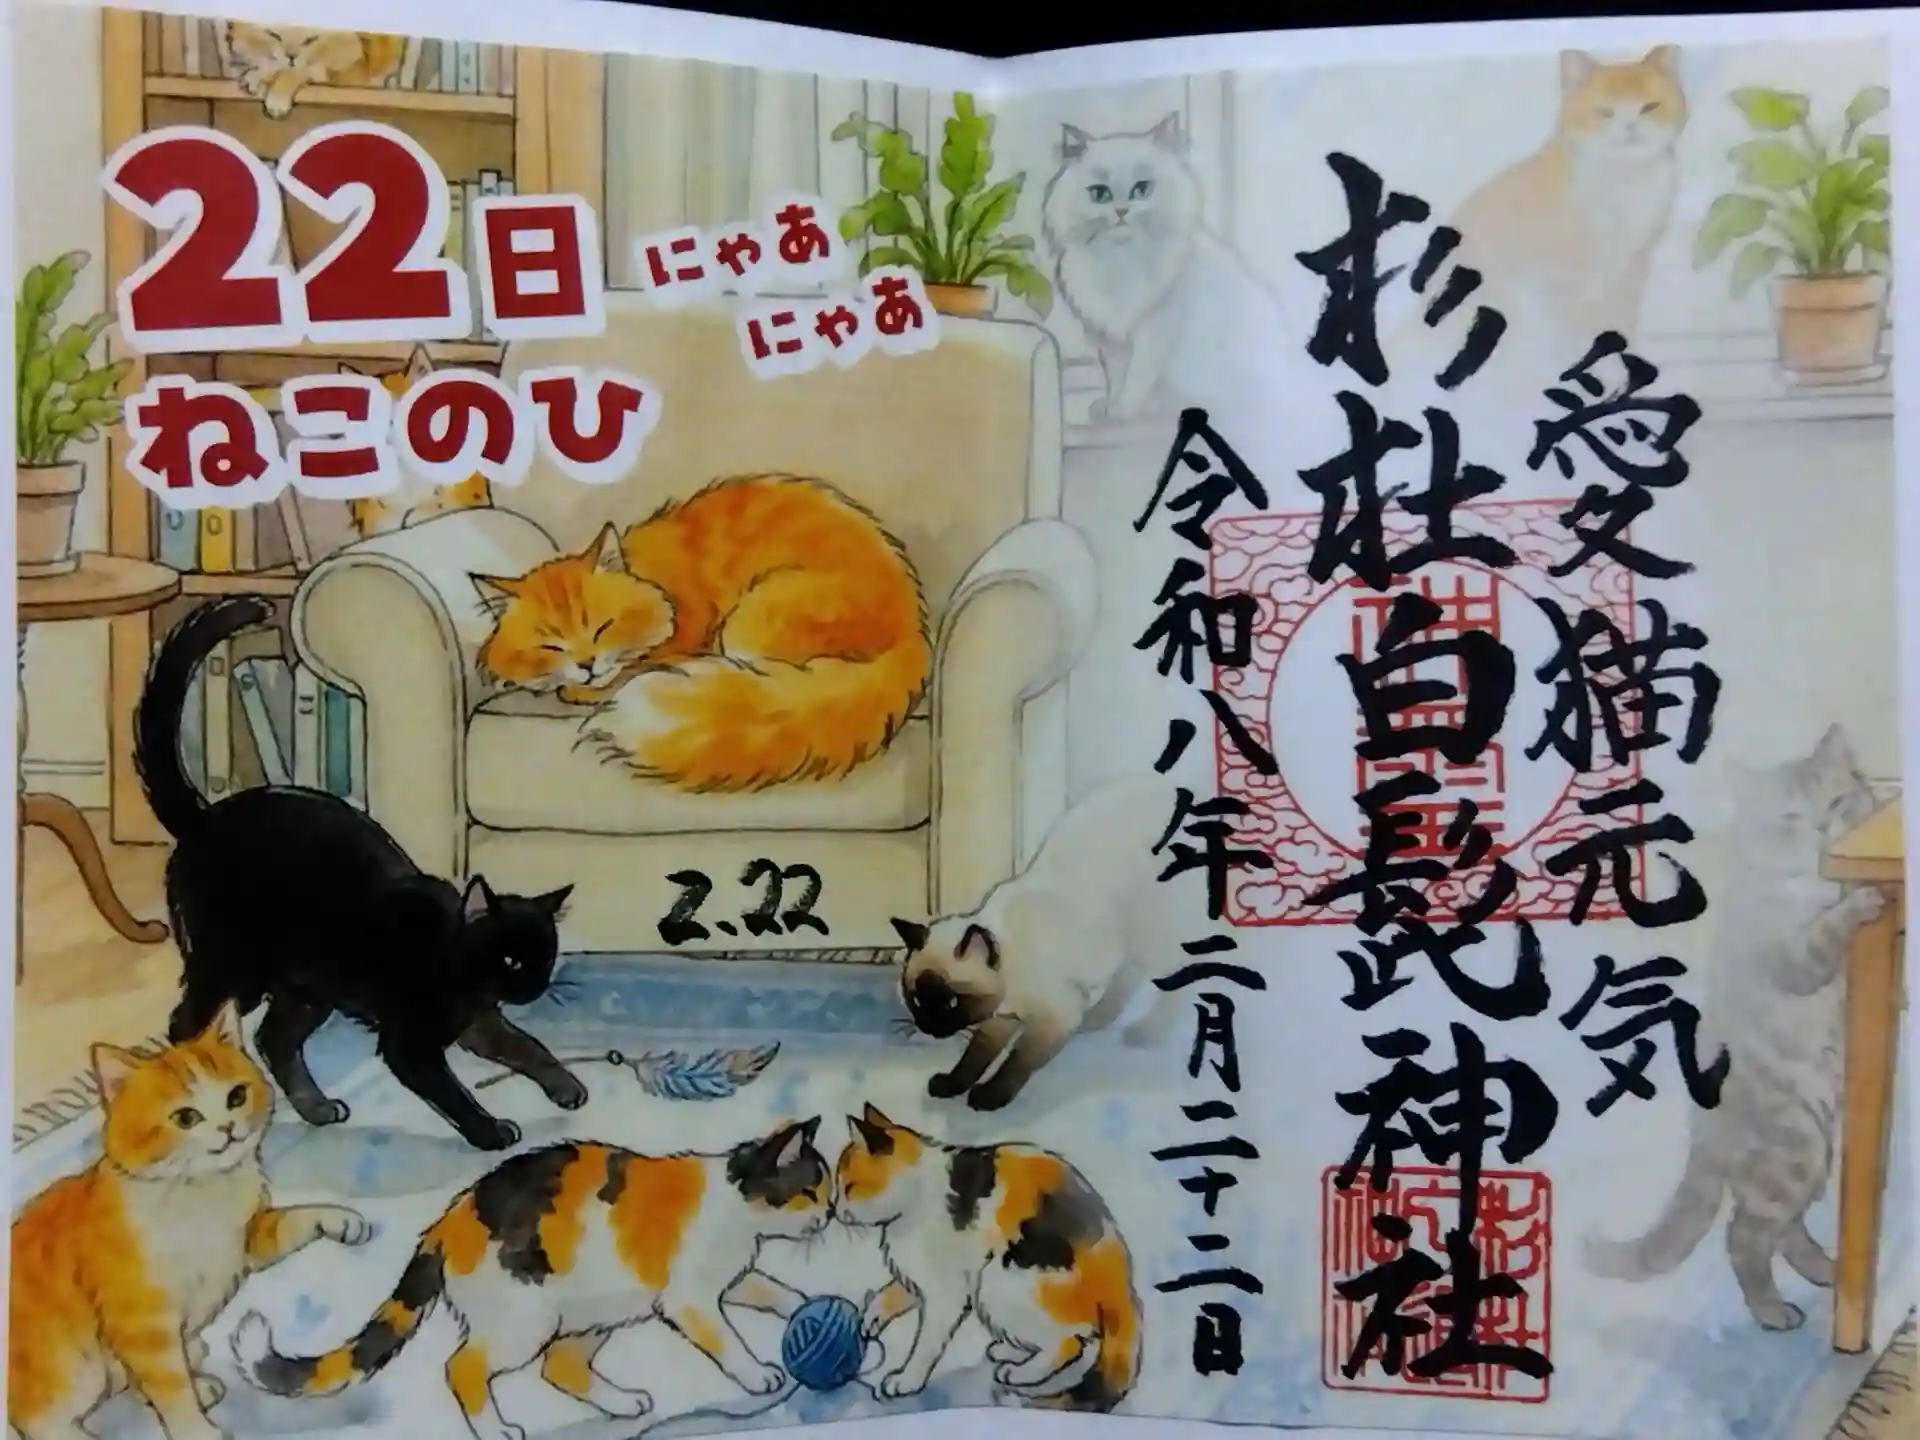 22日
にゃあ
にゃあ
ねこのひ
2.22
愛猫元気
杉杜白髭神社
令和八年二月二十二日